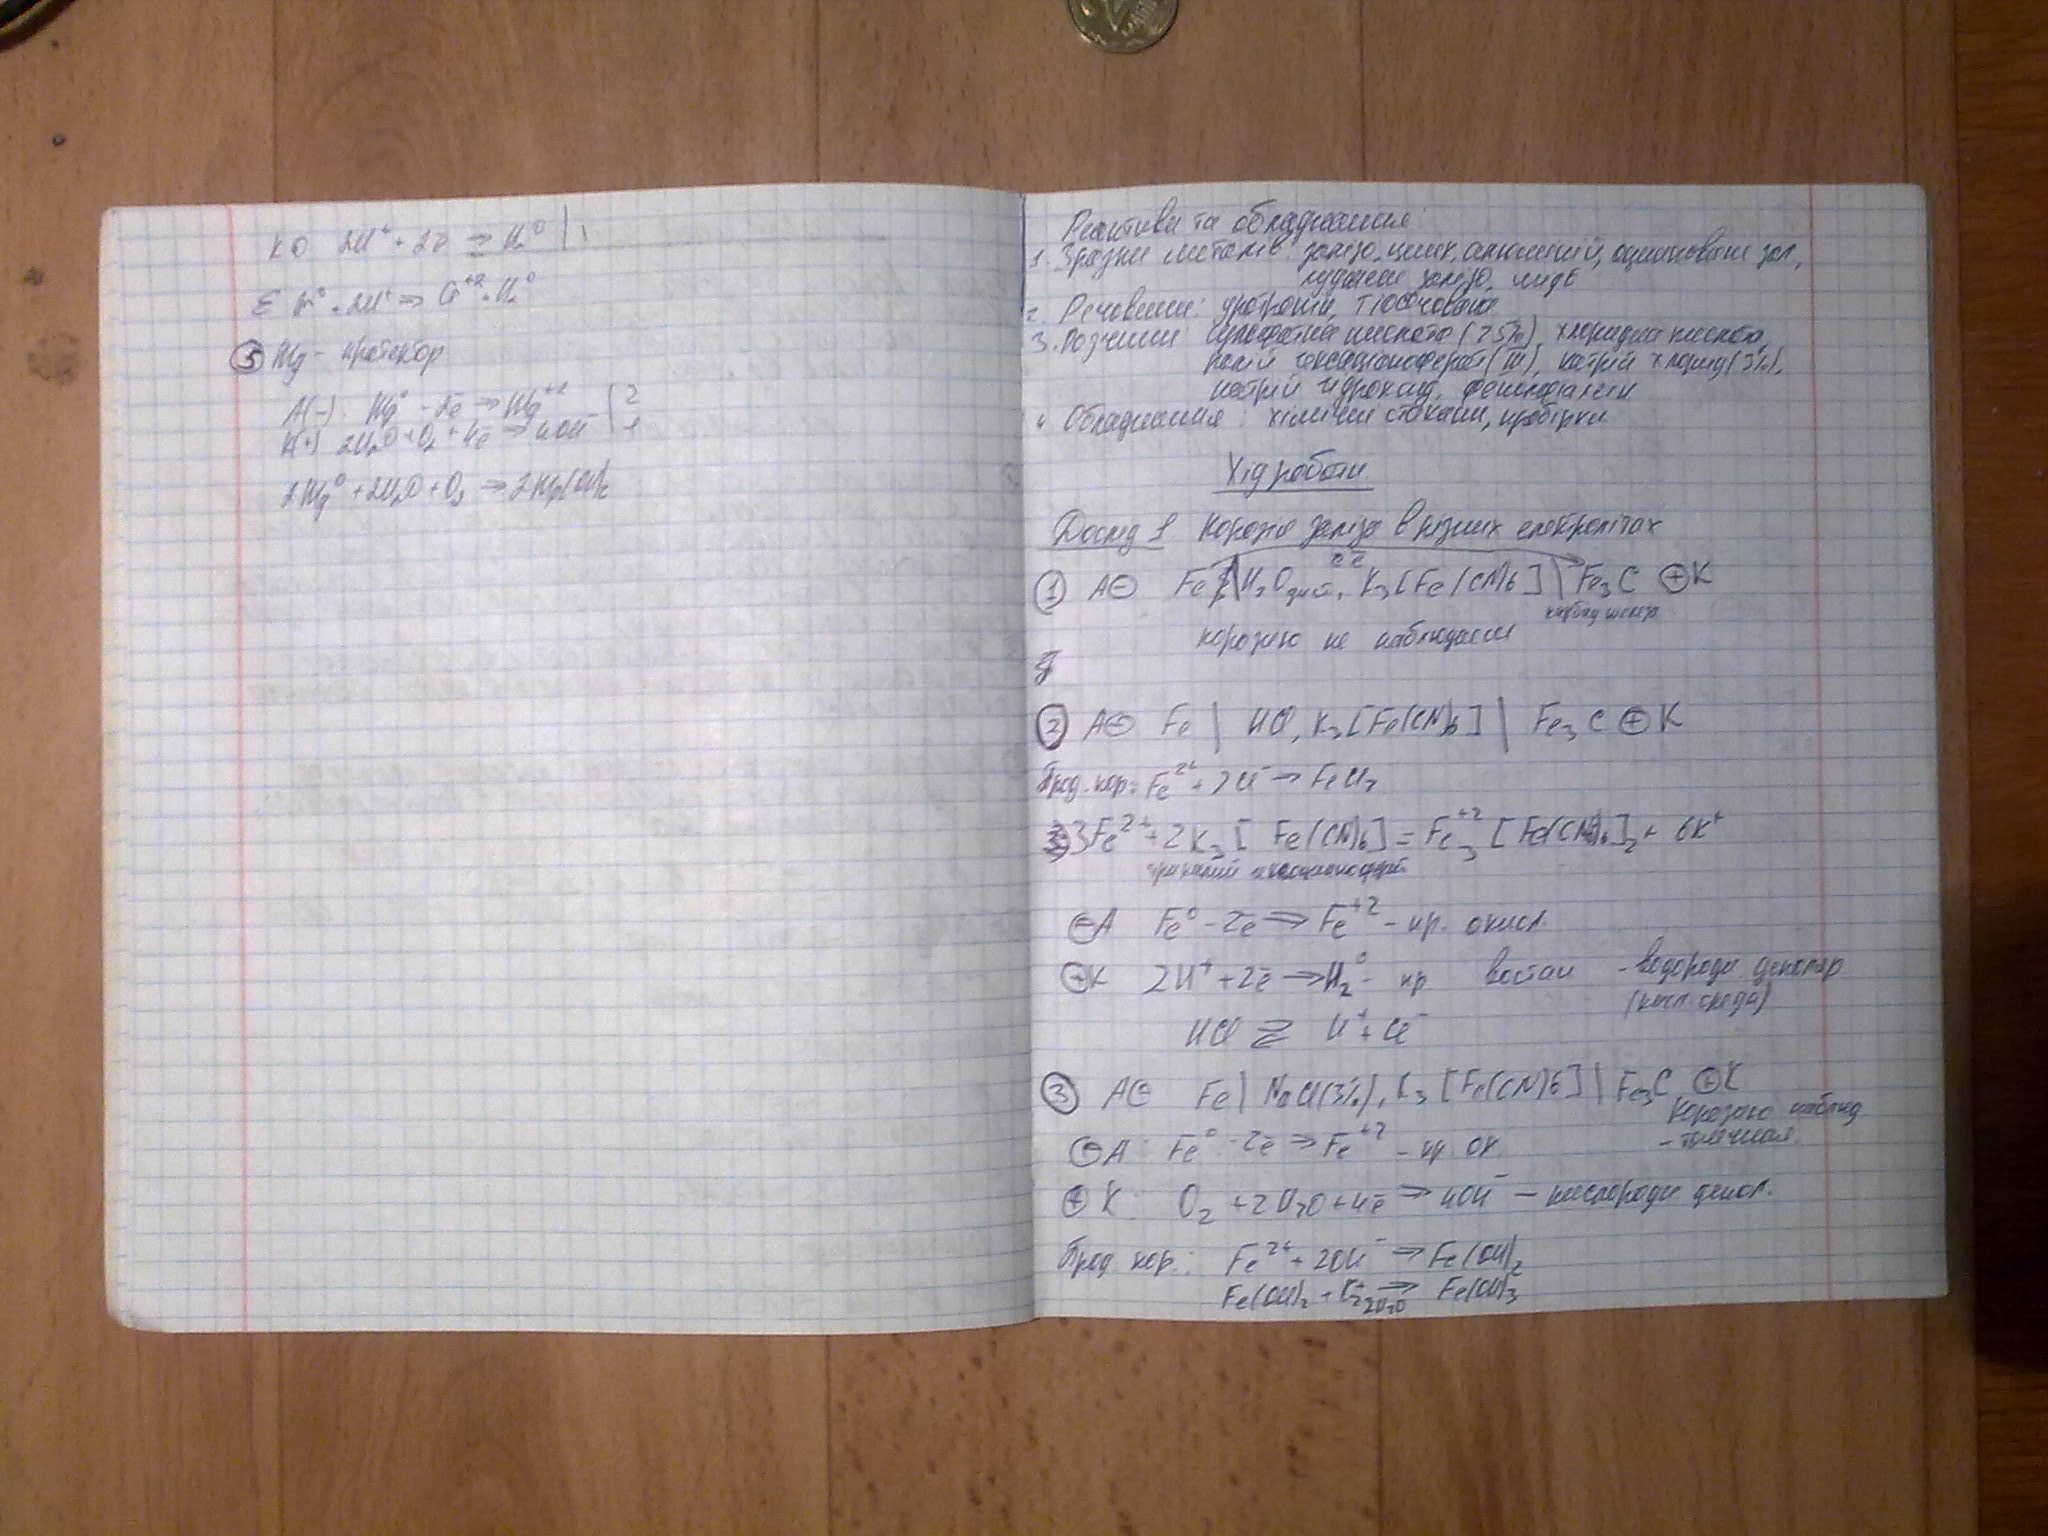 К⊕ 2H⁺ + 2ē ⇒ H₂⁰ | 1
⁰ + 2H⁺ ⇒ Cr⁺² + H₂⁰
⑤ Mg - протектор
A(-): Mg⁰ - 2ē ⇒ Mg⁺² | 2
K(+) 2H₂O + O₂ + 4ē ⇒ 4OH⁻ | 1
2Mg⁰ + 2H₂O + O₂ ⇒ 2Mg(OH)₂
Реактиви та обладнання:
1. Зразки металів: залізо, цинк, алюміній, оцинковане зал.,
луджене залізо, мідь
2. Речовини: уротропін, тіосечовина
3. Розчини: сульфатна кислота (25%), хлоридна кислота,
калій гексаціаноферат (III), натрій хлорид (3%),
натрій гідроксид, фенолфталеїн
4. Обладнання: хімічні стакани, пробірки
Хід роботи
Дослід 1 Корозія заліза в різних електролітах
ē ē
① A⊖ Fe | H₂O дист, K₃[Fe(CN)₆] | Fe₃C ⊕K
карбид железа
корозію не наблюдаем
② A⊖ Fe | HCl, K₃[Fe(CN)₆] | Fe₃C ⊕ K
Прод. кор: Fe²⁺ + 2Cl⁻ → FeCl₂
3Fe²⁺ + 2K₃[Fe(CN)₆] = Fe₃⁺²[Fe(CN)₆]₂ + 6K⁺
⊖A Fe⁰ - 2ē ⇒ Fe⁺² - пр. окисл.
⊕K 2H⁺ + 2ē → H₂⁰ - пр востан - водородн деполяр
(кисл. среда)
HCl ⇄ H⁺ + Cl⁻
③ A⊖ Fe | NaCl(3%), K₃[Fe(CN)₆] | Fe₃C ⊕K
Корозію наблюд
- точечная
⊖A: Fe⁰ - 2ē ⇒ Fe⁺² - пр ок.
⊕ K: O₂ + 2H₂O + 4ē ⇒ 4OH⁻ — кислородн депол.
Прод кор.: Fe²⁺ + 2OH⁻ ⇒ Fe(OH)₂
Fe(OH)₂ + O₂ + 2H₂O → Fe(OH)₃